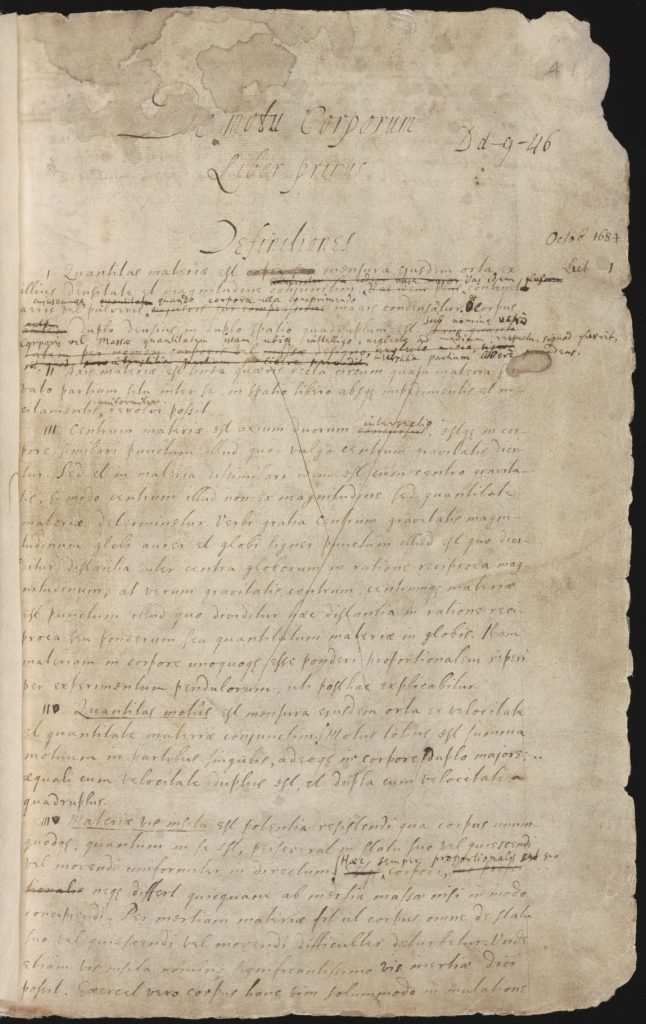 De motu Corporum
Dd-9-46
Liber primus
Definitiones
Octob 1684
Lect 1
1 Quantitas materiæ est mensura ejusdem orta ex
illius densitate et magnitudine conjunctim.
cujuscunque quando corpora illa comprimendo
magis condensatur. Corpus
duplo densius in duplo spatio quadruplum est.
sub nomine
corporis vel Massæ quantitatem istam ubique intelligo, neglecto ad medium respectu, siquod fuerit,
interstitia partium libere pervadens.
11 Axis materiæ est linea quævis recta circum quam materia ser-
vato partium situ inter se, in spatio libero absque impedimentis et in-
citamentis, uniformiter revolvi possit.
111 Centrum materiæ est axium duorum intersectio estque in cor-
pore similari punctum illud quod vulgo centrum gravitatis dici-
tur. Sed et in materia dissimilari idem est cum centro gravita-
tis, si modo centrum illud non ex magnitudine sed quantitate
materiæ determinetur. Verbi gratia centrum gravitatis magni-
tudinum globi aurei et globi lignei punctum illud est quo divi-
ditur distantia inter centra globorum in ratione reciproca mag-
nitudinum, at verum gravitatis centrum, centrumque materiæ
est punctum illud quo dividitur hæc distantia in ratione reci-
proca ponderum seu quantitatum materiæ in globis. Nam
materiam in corpore unoquoque esse ponderi proportionalem reperi
per experimentum pendulorum, uti posthac explicabitur.
Quantitas motûs est mensura ejusdem orta ex velocitate
et quantitate materiæ conjunctim. Motus totius est summa
motuum in partibus singulis, adeoque in corpore duplo majore
æquali cum velocitate duplus est, et dupla cum velocitate
quadruplus.
Materiæ vis insita est potentia resistendi qua corpus unum-
quodque, quantum in se est, perseverat in statu suo vel quiescendi
vel movendi uniformiter in directum. Hæc semper proportionalis est suo
corpori,
neque differt quicquam ab inertia massæ nisi in modo
concipiendi. Per inertiam materiæ fit ut corpus omne de statu
suo vel quiescendi vel movendi difficulter deturbetur. Unde
etiam vis insita nomine significantissimo vis inertiæ dici
possit. Exercet vero corpus hanc vim solummodo in mutatione